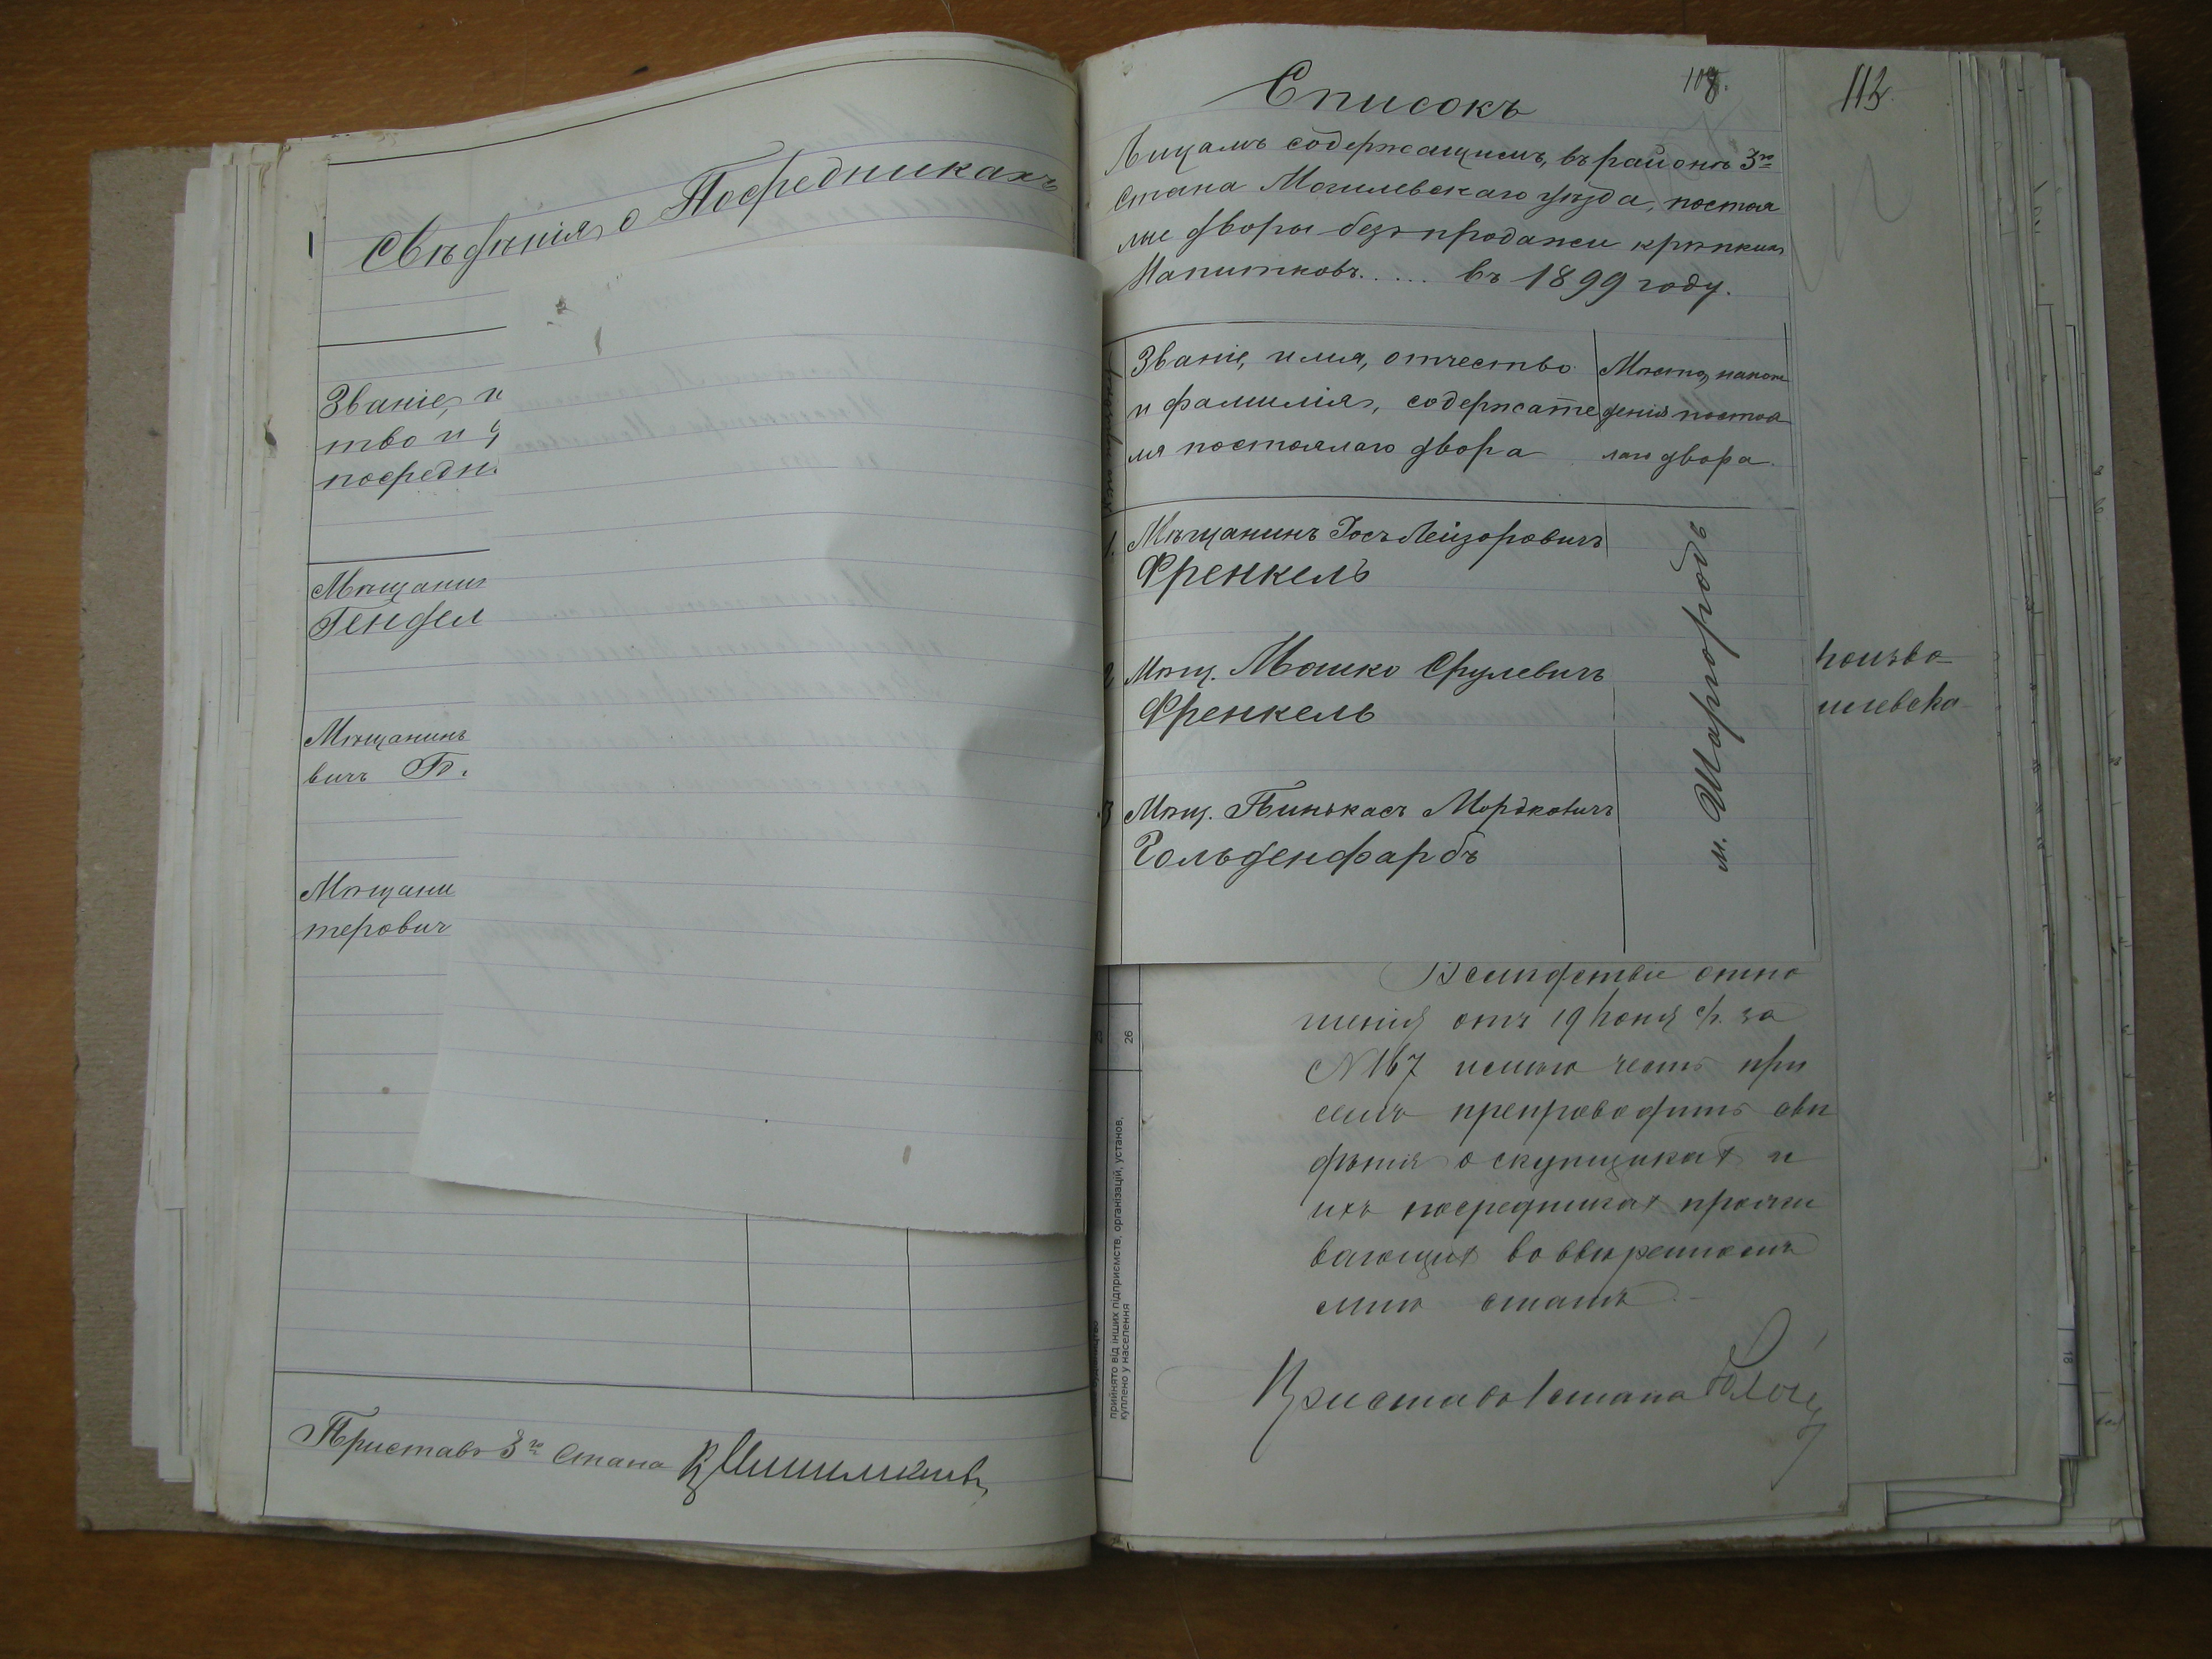 Свѣдѣнія о Посредникахъ
Званіе, и
тво и
посредн
Мѣщанин
Гендел
Мѣщанинъ
вичъ
Мѣщани
терович
Приставъ 3го Стана
108.
113.
Списокъ
Лицамъ содержащимъ, въ районѣ 3го
стана Могилевскаго уѣзда, постоя
лые дворы безъ продажи крѣпкихъ
Напитковъ..... въ 1899 году.
Званіе, имя, отчество
и фамилія, содержате
ля постоялаго двора
Мѣсто нахож
денія постоя
лаго двора.
1. Мѣщанинъ Іосъ Лейзоровичъ
Френкель
2 Мѣщ. Мошко Срулевичъ
Френкель
3 Мѣщ. Пинькасъ Мордковичъ
Гольденфарбъ
м. Шаргородъ
Вслѣдствіе отно
шенія отъ 19 Іюня с/г. за
№ 167 имѣю честь при
семъ препроводить свѣ
дѣнія о скупщикахъ и
ихъ посредникахъ прожи
вающихъ во ввѣренномъ
мнѣ станѣ.
Приставъ 1 стана
25
26
прийнято від інших підприємств, організацій, установ,
куплено у населення
18